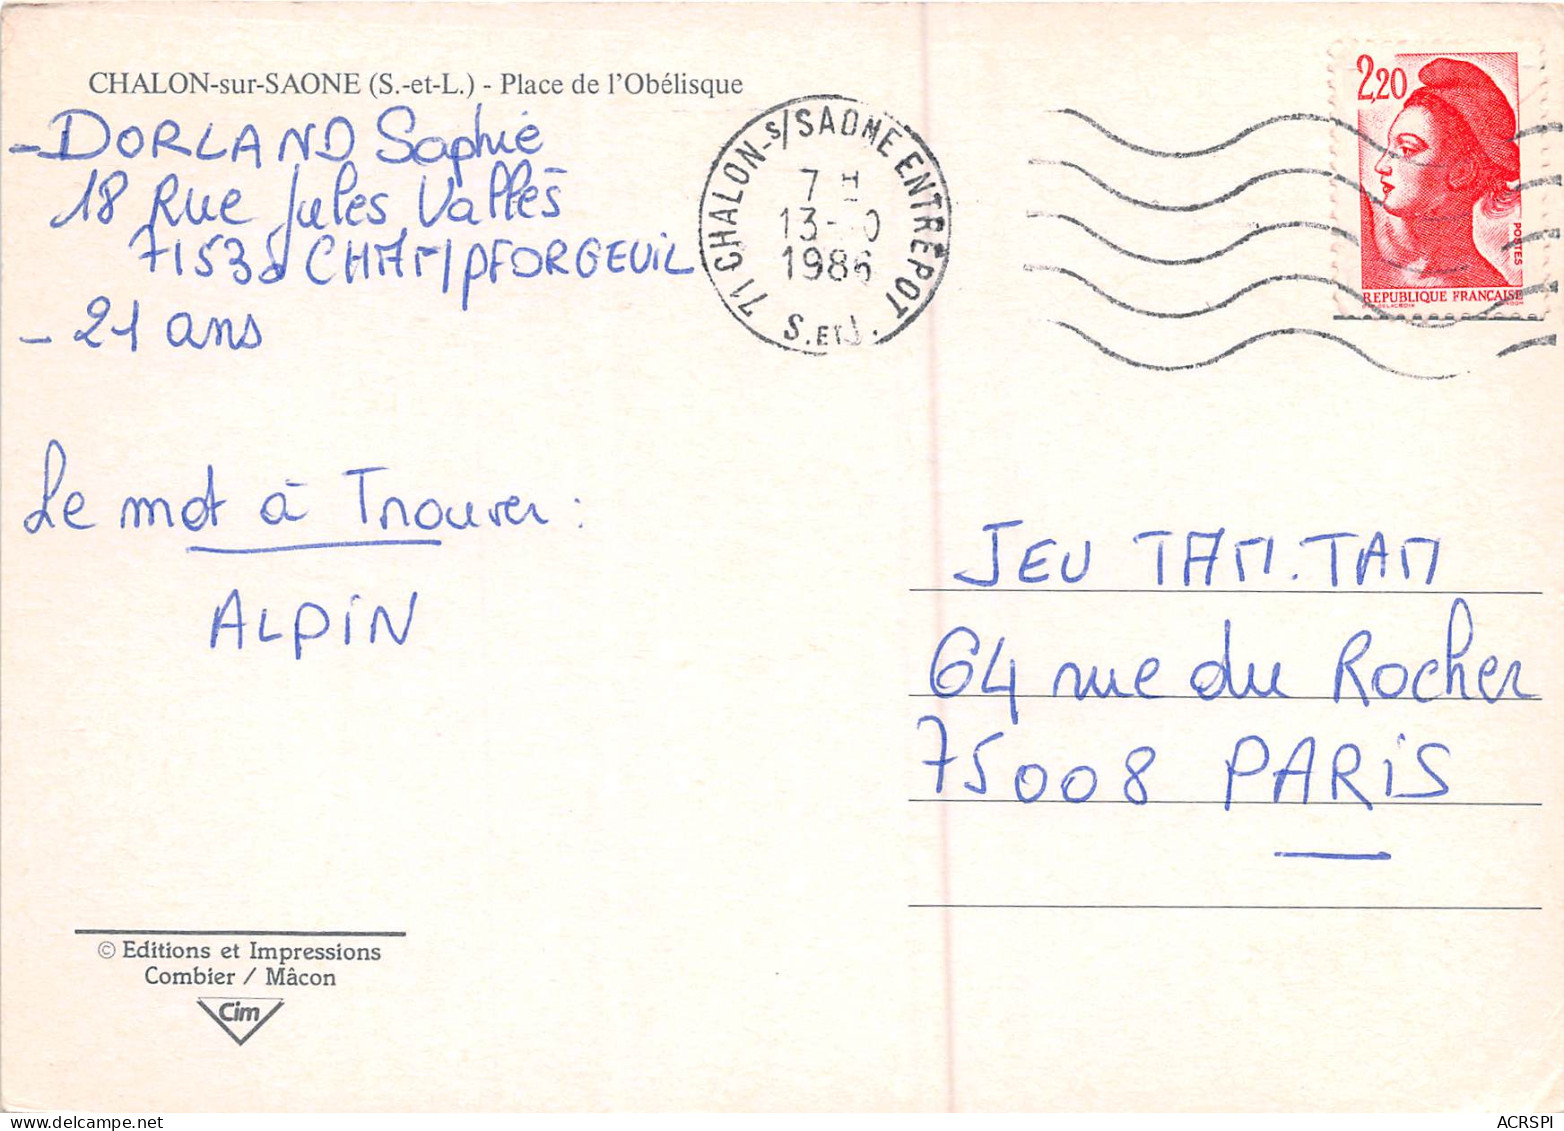 CHALON-sur-SAONE (S.-et-L.) - Place de l'Obélisque
- DORLAND Sophie
18 Rue Jules Vallès
71530 CHAMPFORGEUIL
- 21 ans
71 CHALON-s/SAONE ENTREPOT
7 H
13-10
1986
S. ET L.
2,20
POSTES
REPUBLIQUE FRANCAISE
Le mot à Trouver :
ALPiN
JEU TAM.TAM
64 rue du Rocher
75008 PARiS
© Editions et Impressions
Combier / Mâcon
Cim
ACRSPI